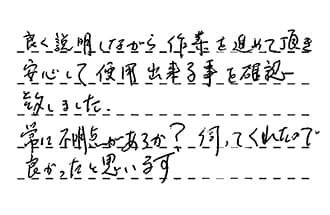 良く説明しながら作業を進めて頂き
安心して使用出来る事を確認
致しました.
常に不明点があるか? 伺ってくれたので
良かったと思います